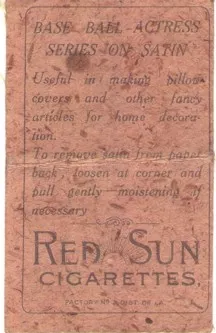 BASE BALL ACTRESS
SERIES ON SATIN
Useful in making pillow
covers and other fancy
articles for home decora-
tion.
To remove satin from paper
back, loosen at corner and
pull gently moistening if
necessary
RED SUN
CIGARETTES
FACTORY NO. 3, DIST. OF LA.